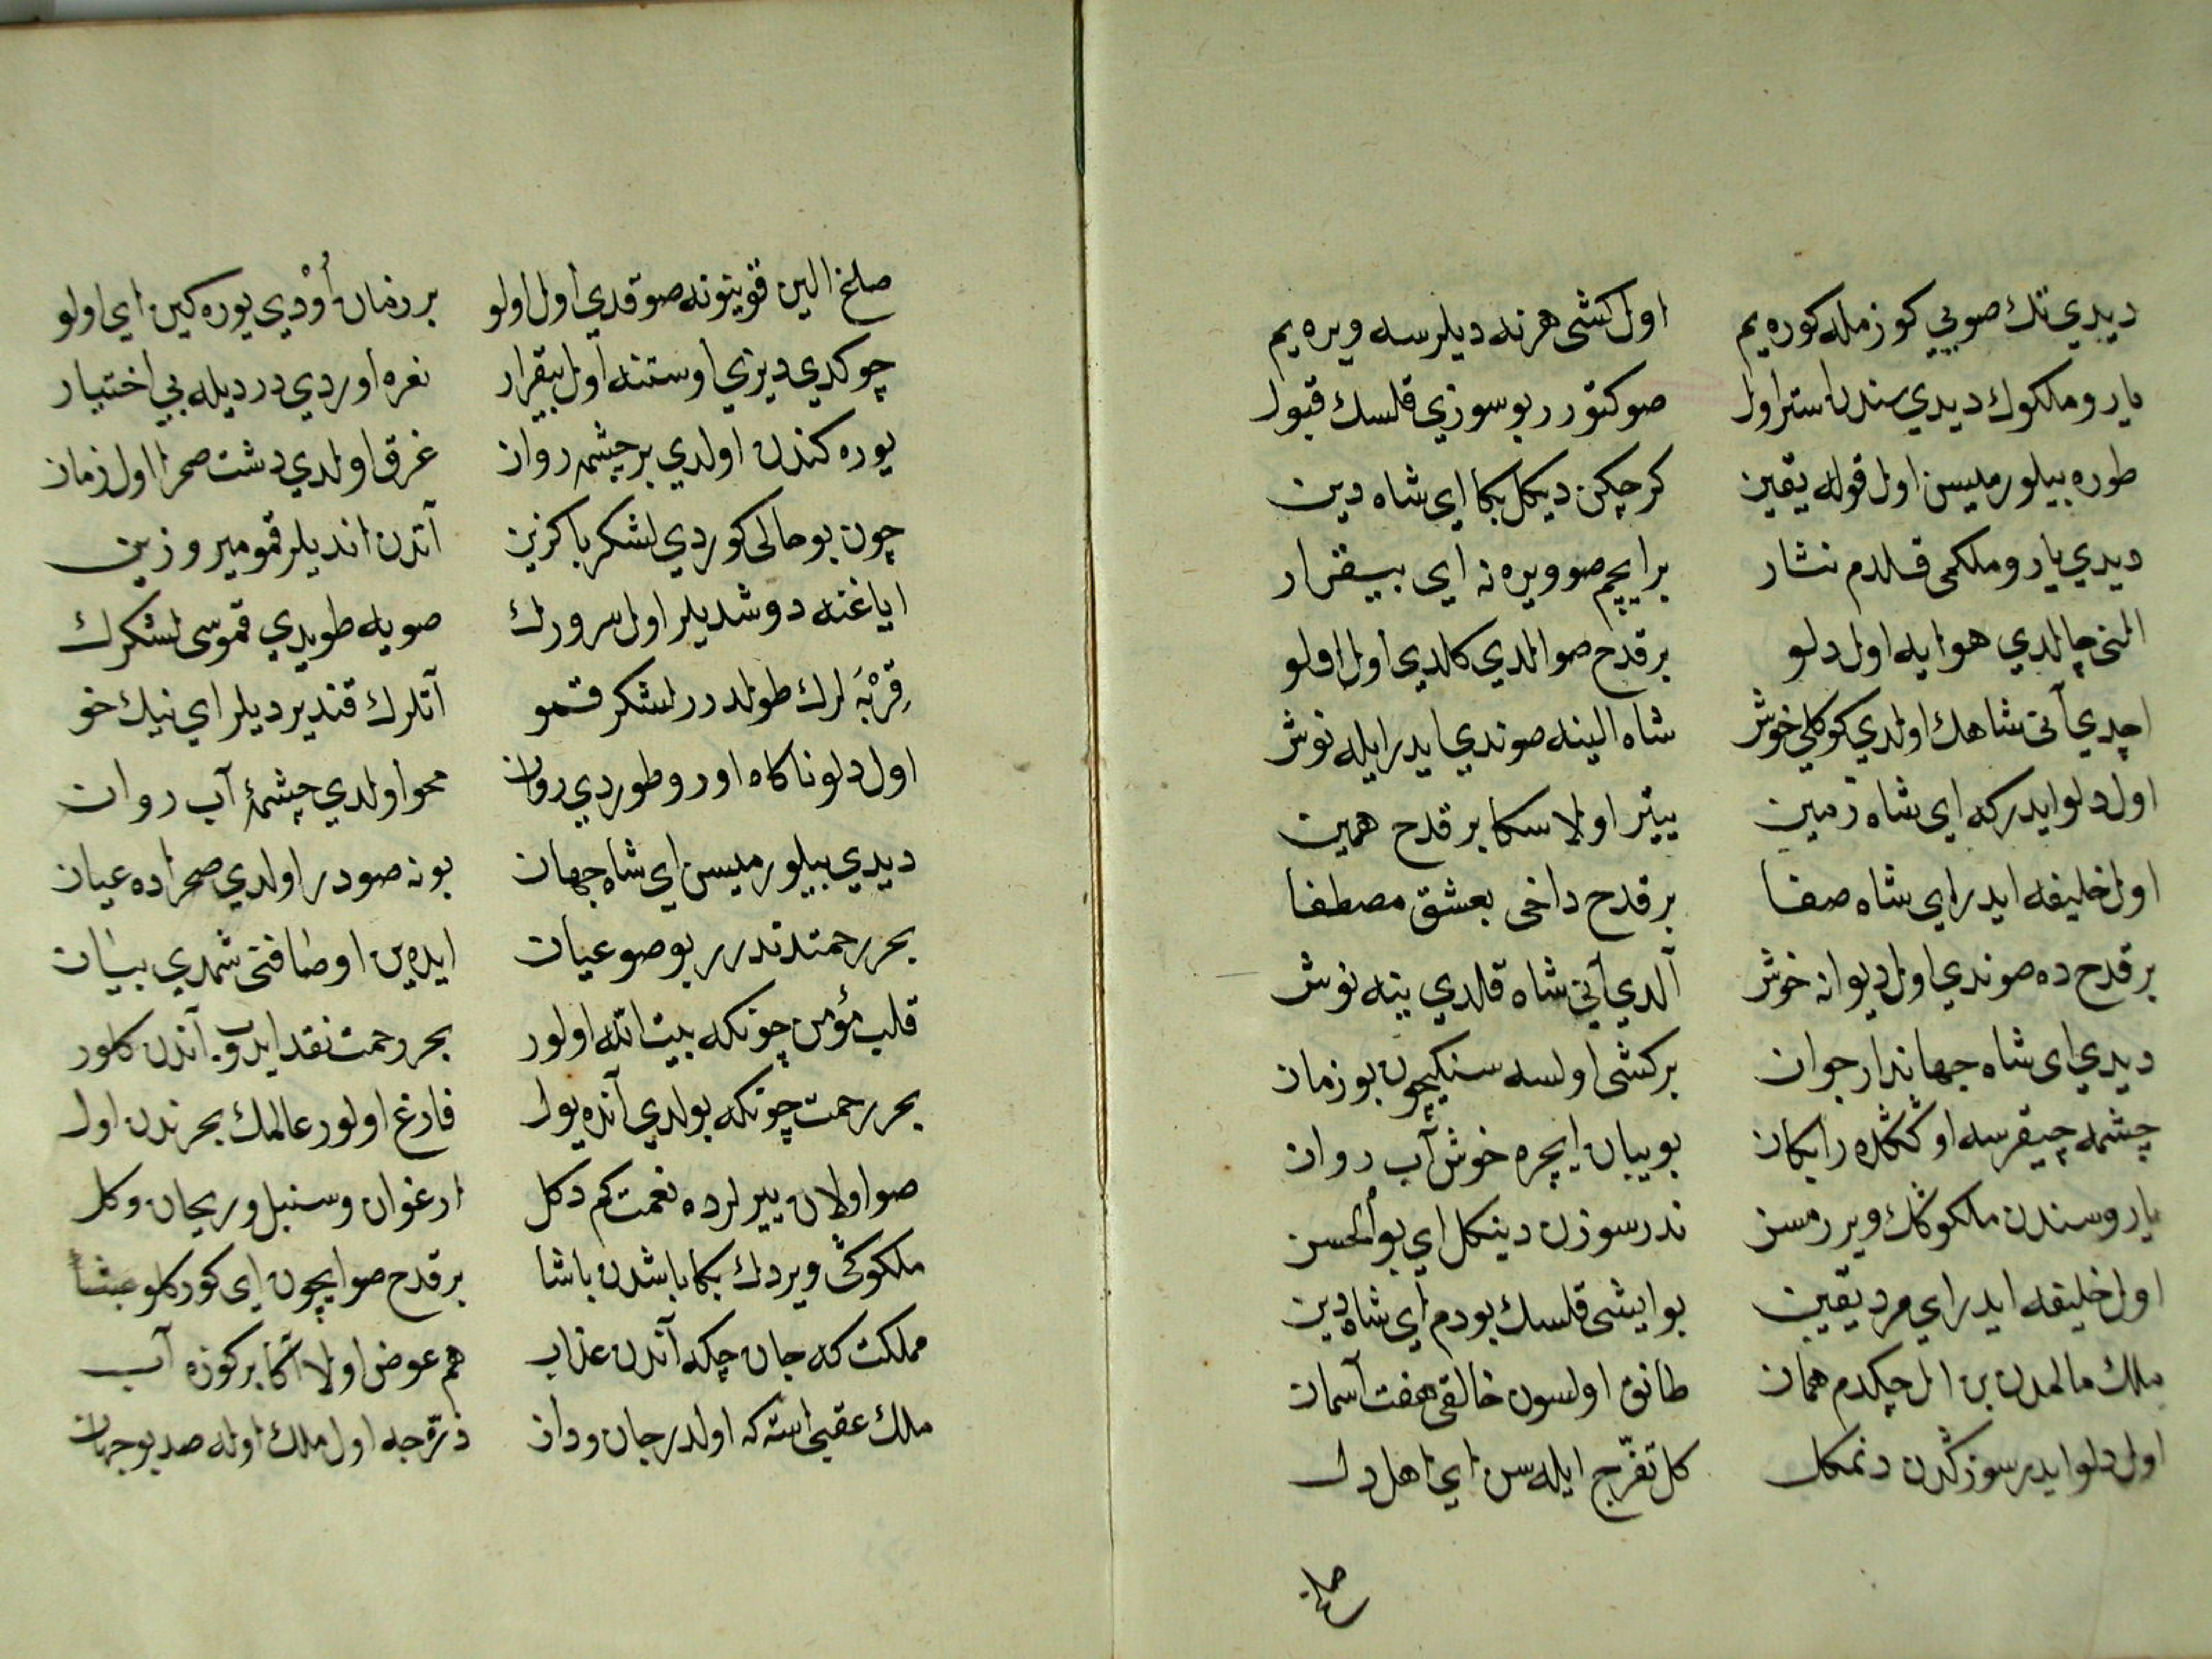 ديدي تك صويي كوزمله كوره يم اول كشى هر نه ديلرسه ويره يم
يارو ملكوك ديدي سندن استر اول صو كتورر بو سوزي قلسك قبول
طوره بيلورميسن اول قوله يقين كرچكن ديكل بكا اي شاه دين
ديدي يارو ملكمى قلدم نثار بر ايچم صو ويره نه اي بيقرار
النى چالدي هوايه اول دلو بر قدح صو الدي كلدي اول اولو
اچدي آنى شاهك اولدي كوكلي خوش شاه الينه صوندي ايدر ايله نوش
اول دلو ايدر كه اي شاه زمين ييتر اولا سكا بر قدح همين
اول خليفه ايدر اي شاه صفا بر قدح داخى بعشق مصطفا
بر قدح ده صوندي اول ديوانه خوش آلدي آنى شاه قلدي ينه نوش
ديدي اى شاه جهاندار جوان بر كشى اولسه سنيكچون بو زمان
چشمه چيقرسه اوككده رايكان بو بيبان ايچره خوش آب روان
يارو سندن ملكوكك ويررمسن ندر سوزن دينكل اي بو الحسن
اول خليفه ايدر اي مرد يقين بو ايشى قلسك بودم اي شاه دين
ملك مالمدن بن ال چكدم همان طانق اولسون خالقى هفت آسمان
اول دلو ايدر سوزكدن دنمكل كل تفرّج ايله سن اي اهل دل
صاغ
صاغ الين قوينونه صوقدي اول اولو بر زمان اُوْدي يوره كين اي اولو
چوكدي ديزي اوستنه اول بيقرار نعره اوردي درديله بي اختيار
يوره كندن اولدي بر چشمه روان غرق اولدي دشت صحرا اول زمان
چون بو حالى كوردي لشكر باكزين آتدن انديلر قمو مير و زين
اياغنه دوشديلر اول سرورك صويه طويدي قموسى لشكرك
قِرْبَه لرك طولدرر لشكر قمو آتلرك قنديرديلر اي نيك خو
اول دلو ناكاه اورو طوردي روان محو اولدي چشمهٔ آب روان
ديدي بيلورميسن اي شاه جهان بو نه صودر اولدي صحراده عيان
بحر رحمتدندرر بو صو عيان ايده ين اوصافنى شمدي بيان
قلب مؤمن چونكه بيت الله اولور بحر رحمت نقد ايدوب آندن كلور
بحر رحمت چونكه بولدي آنده يول فارغ اولور عالمك بحرندن اول
صو اولان ييرلرده نعمت كم دكل ارغوان و سنبل و ريحان و كل
ملكوكى ويردك بكا باشدن باشا بر قدح صو ايچون اى كوركلو بشا
مملكت كه جان چكه آندن عذاب هم عوض اولا اكا بر كوزه آب
ملك عقبى استه كه اولدر جان ودان ذرّه جه اول ملك اوله صد بو جهان